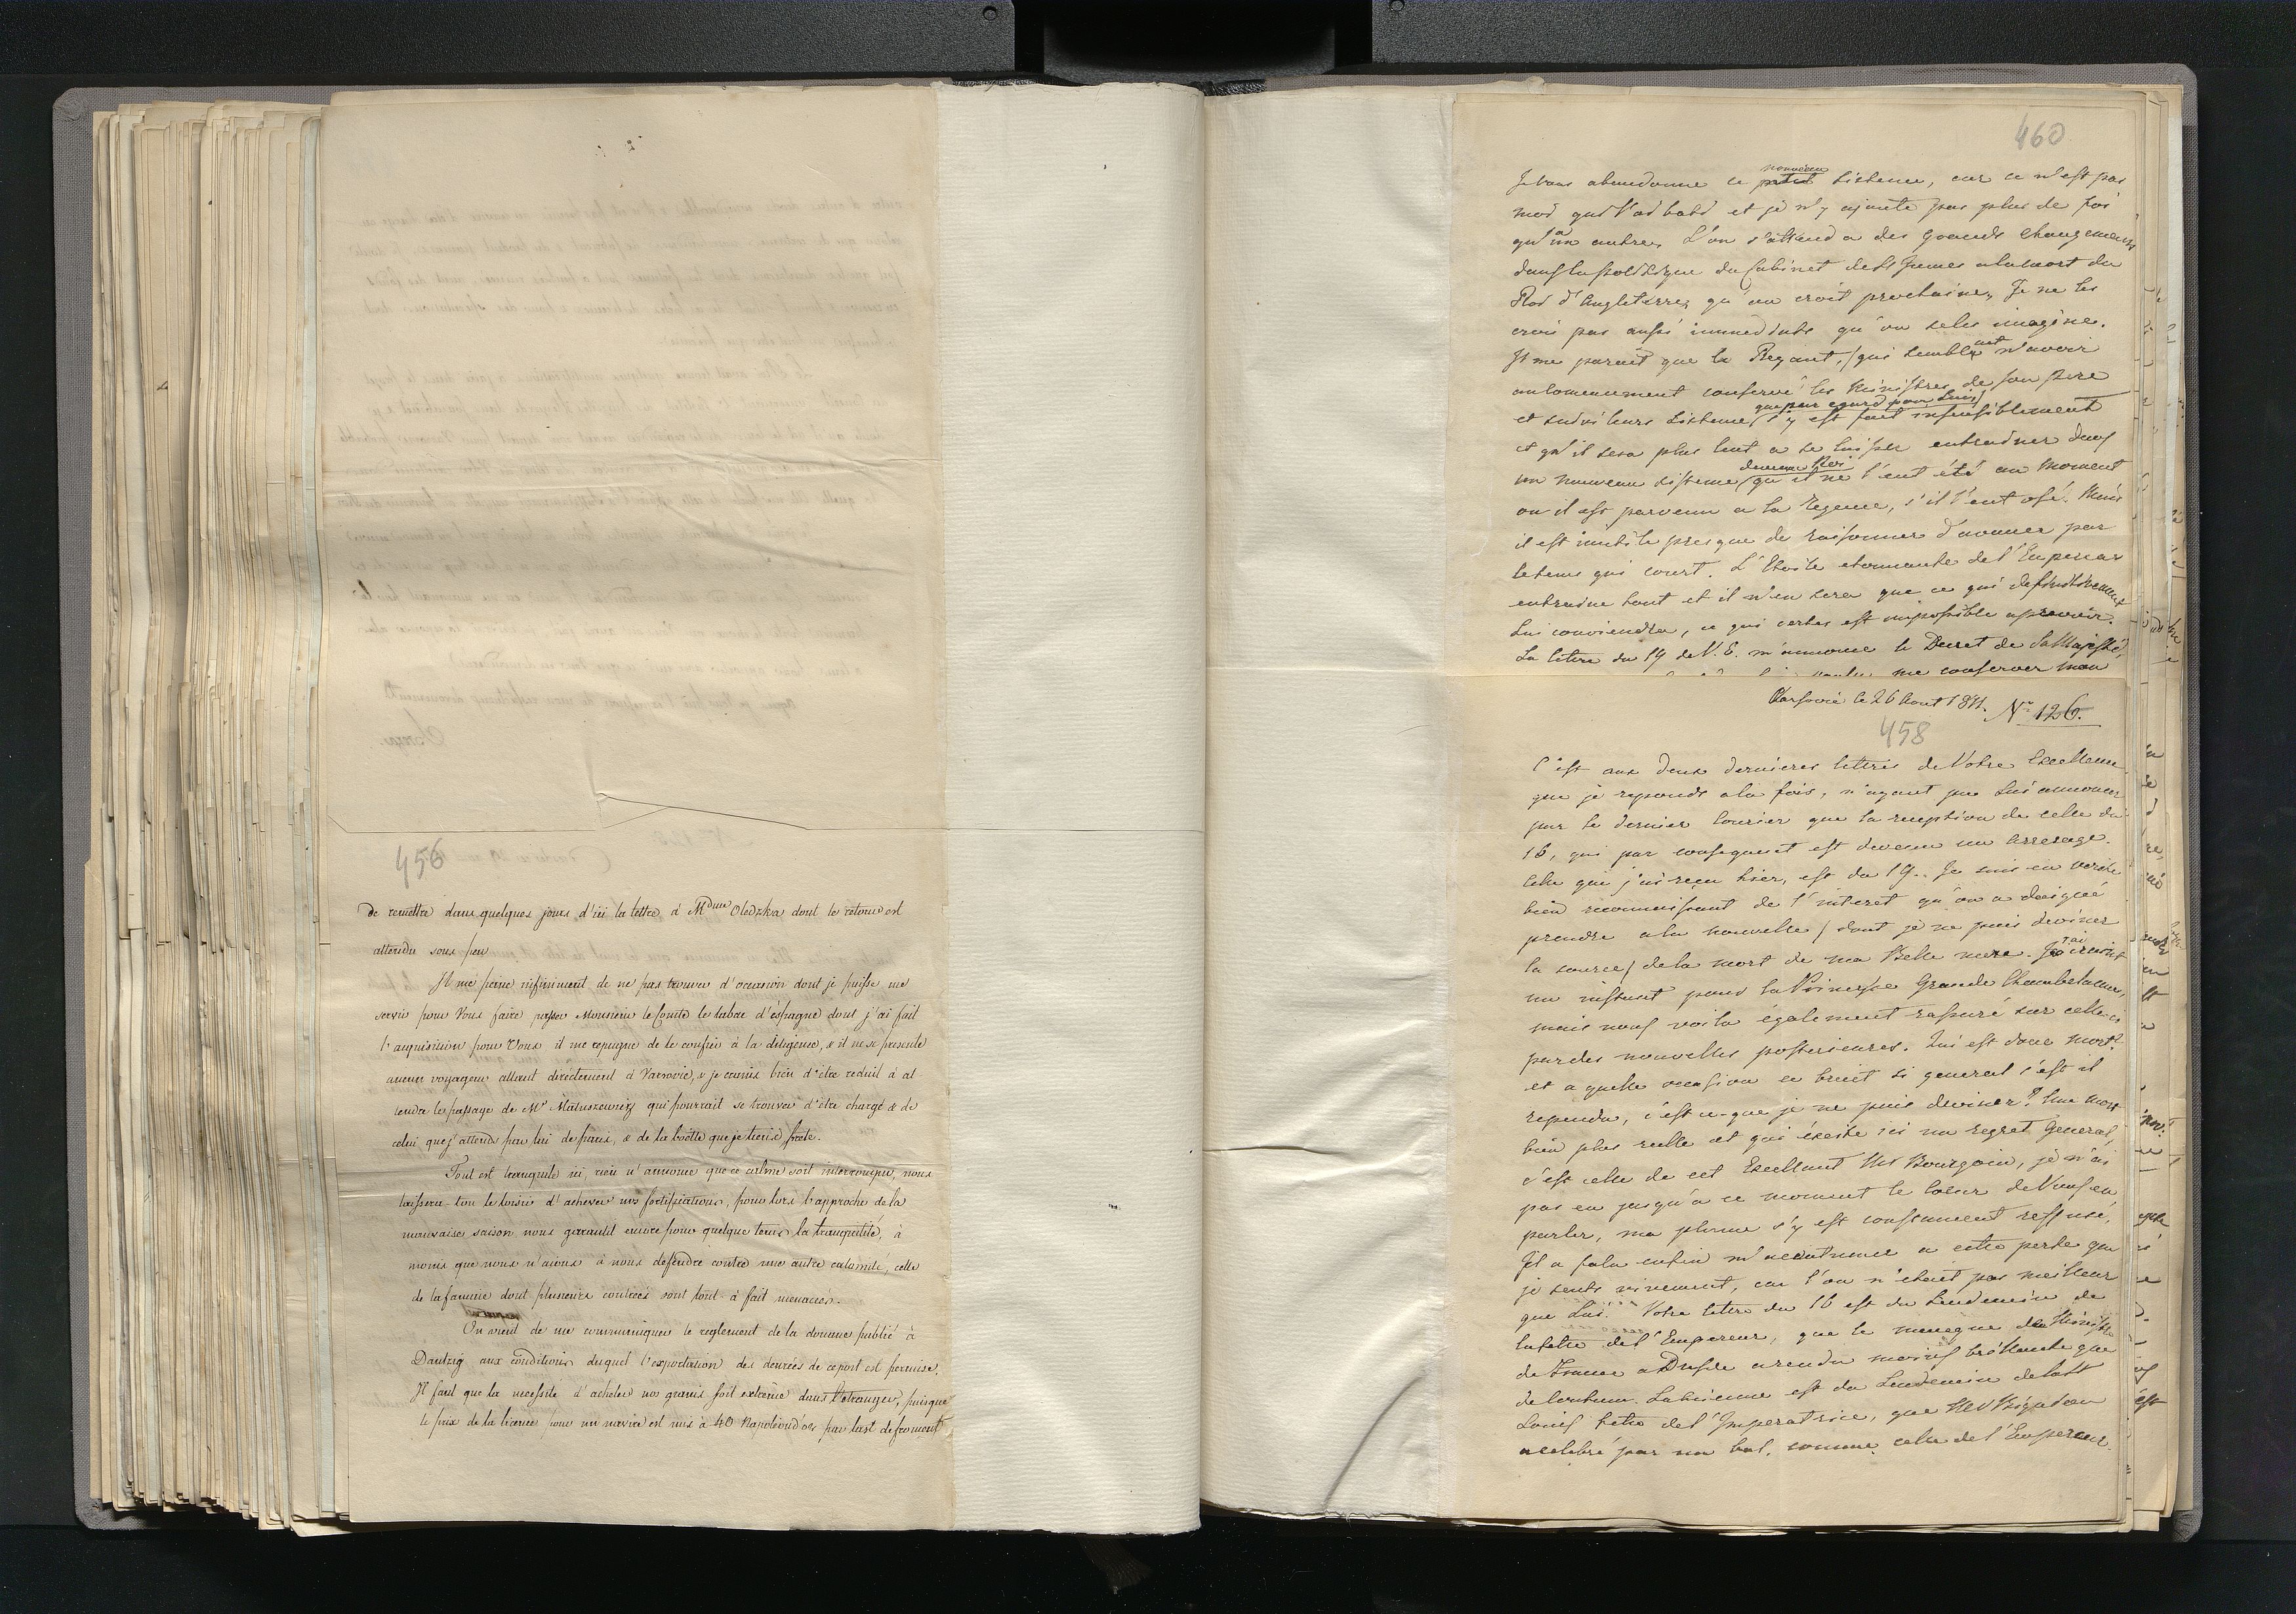 456
de remettre dans quelques jours d'ici la lettre à Mdme Oledzka dont le retour est
attendu sous peu
Il me peine infiniment de ne pas trouver d'occasion dont je puisse me
servir pour Vous faire passer Monsieur le Comte le tabac d'éspagne dont j'ai fait
l'acquisition pour Vous il me repugne de le confier à la diligence, & il ne se présente
aucun voyageur allant directement à Varsovie, & je crains bien d'être reduit à at
tendre le passage de Mr Matuszewicz qui pourrait se trouver d'être chargé & de
celui que j'attends par lui de paris, & de la boëtte que je tiens prete.
Tout est tranquile ici, rien n'annonce que ce calme soit interrompu, nous
laissera-ton le loisir d'achever nos fortifications, pour lors l'approche de la
mauvaise saison nous garantit encore pour quelque tems la tranquilité, à
moins que nous n'aions à nous deffendre contre une autre calamité, celle
de la famine dont plusieurs contrées sont tout-à fait menacées.
On vient de me communiquer le reglement de la douane publié à
Dantzig aux conditions duquel l'exportation des denrées de ce port est permise.
Il faut que la necessité d'acheter nos grains soit extrême dans l'étranger, puisque
le prix de la licence pour un navire est mis à 40 Napoléond'ors par last de froment
460
Je vous abandonne ce nouveau sisteme, car ce n'est pas
moi qui l'ai bati et je n'y ajoute pas plus de foi
qu'à un autre. L'on s'attend a des grands changemens
dans la politique du Cabinet de St James a la mort du
Roi d'Angleterre, qu'on croit prochaine. Je ne les
crois pas aussi immediats qu'on se les imagine.
Il me parait que le Regent, (qui semblait n'avoir
anciennement conservé les Ministres de son Pere
et suivi leurs sisteme que par egard pour Lui) s'y est fait insensiblement
et qu'il sera plus lent a se laisser entrainer dans
un nouveau sisteme devenu Roi qu'il ne l'eut été au moment
ou il est parvenu a la Regence, s'il l'eut osé. Mais
il est inutile presque de raisonner d'avance par
le tems qui court. L'Etoile etonnante de l'Empereur
entraine tout et il n'en sera que ce qui definitivement
Lui conviendra, ce qui certes est impossible a prevoir.
La lettre du 19 de V. E. m'annonce le Decret de Sa Majesté,
me conserver mon
Varsovie le 26 Aout 1811. No 126.
458
C'est aux deux dernieres lettres de Votre Excellence
que je reponds a la fois, n'ayant pu Lui annoncer
par le dernier Courier que la reception de celle du
16, qui par consequent est devenu un Arrerage.
Celle que j'ai reçu hier, est du 19. Je suis en verité
bien reconnaissant de l'interet qu'on a daigné
prendre a la nouvelle (dont je ne puis deviner
la source) de la mort de ma Belle mere. J'ai craint
un instant pour la Princesse Grande Chambelanne,
mais nous voila également rassuré sur celle-ci
par des nouvelles posterieures. Qui est donc mort?
et a quelle occasion ce bruit si general s'est il
rependu, c'est ce-que je ne puis deviner? Une mort
bien plus reelle et qui éxcite ici un regret General,
c'est celle de cet Excellent Mr Bourgoin, je n'ai
pas eu jusqu'a ce moment le coeur de Vous en
parler, ma plume s'y est constament reffusé,
Il a falu enfin m'accoutumer a cette perte que
je sents vivement, car l'on n'etait pas meilleur
que Lui. Votre lettre du 16 est du lendemain de
la fette de l'Empereur, que le manque du Ministre
de France a Dresde a rendu moins brillante que
de coutume. La mienne est du Lendemain de la St
Louis fette de l'Imperatrice, que Mr Bignon
a celebré par un bal, comme celle de l'Empereur.